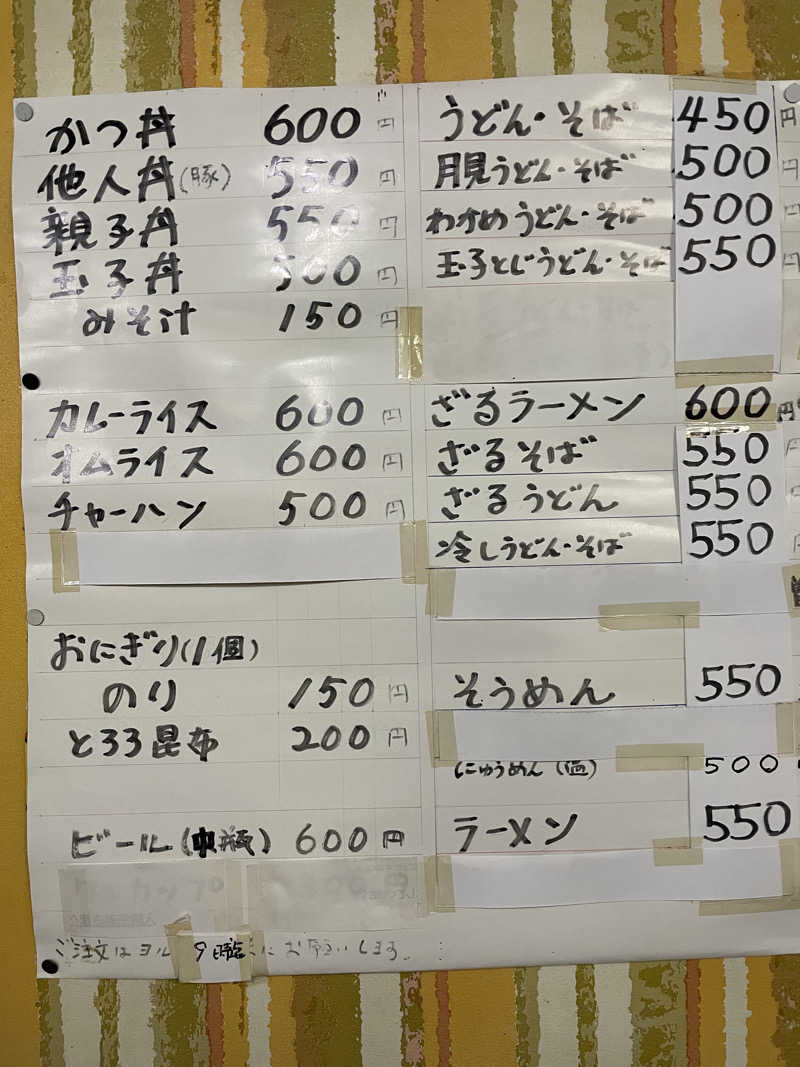 かつ丼 600円
他人丼(豚) 550円
親子丼 550円
玉子丼 500円
みそ汁 150円
カレーライス 600円
オムライス 600円
チャーハン 500円
おにぎり(1個)
のり 150円
とろろ昆布 200円
ビール(中瓶) 600円
ご注文はヨル 9時 にお願いします。
うどん・そば 450円
月見うどん・そば 500円
わかめうどん・そば 500円
玉子とじうどん・そば 550円
ざるラーメン 600円
ざるそば 550円
ざるうどん 550
冷しうどん・そば 550円
そうめん 550
にゅうめん(温) 500
ラーメン 550